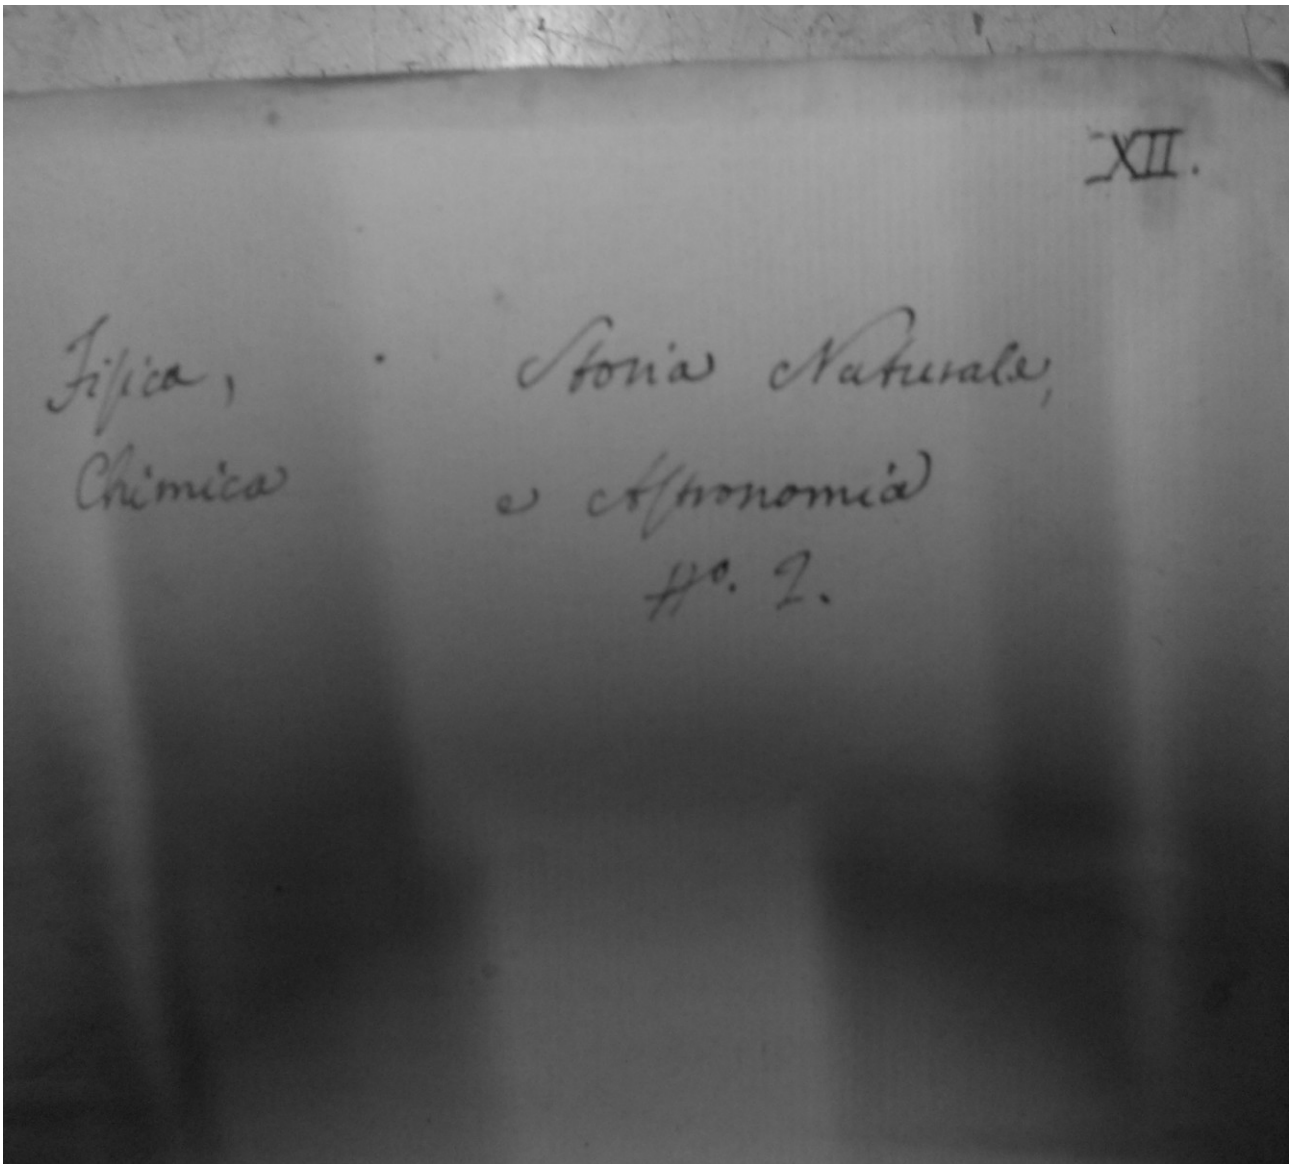 XII.
Fiſica, Storia Naturale,
Chimica e Aſtronomia
N°. 2.